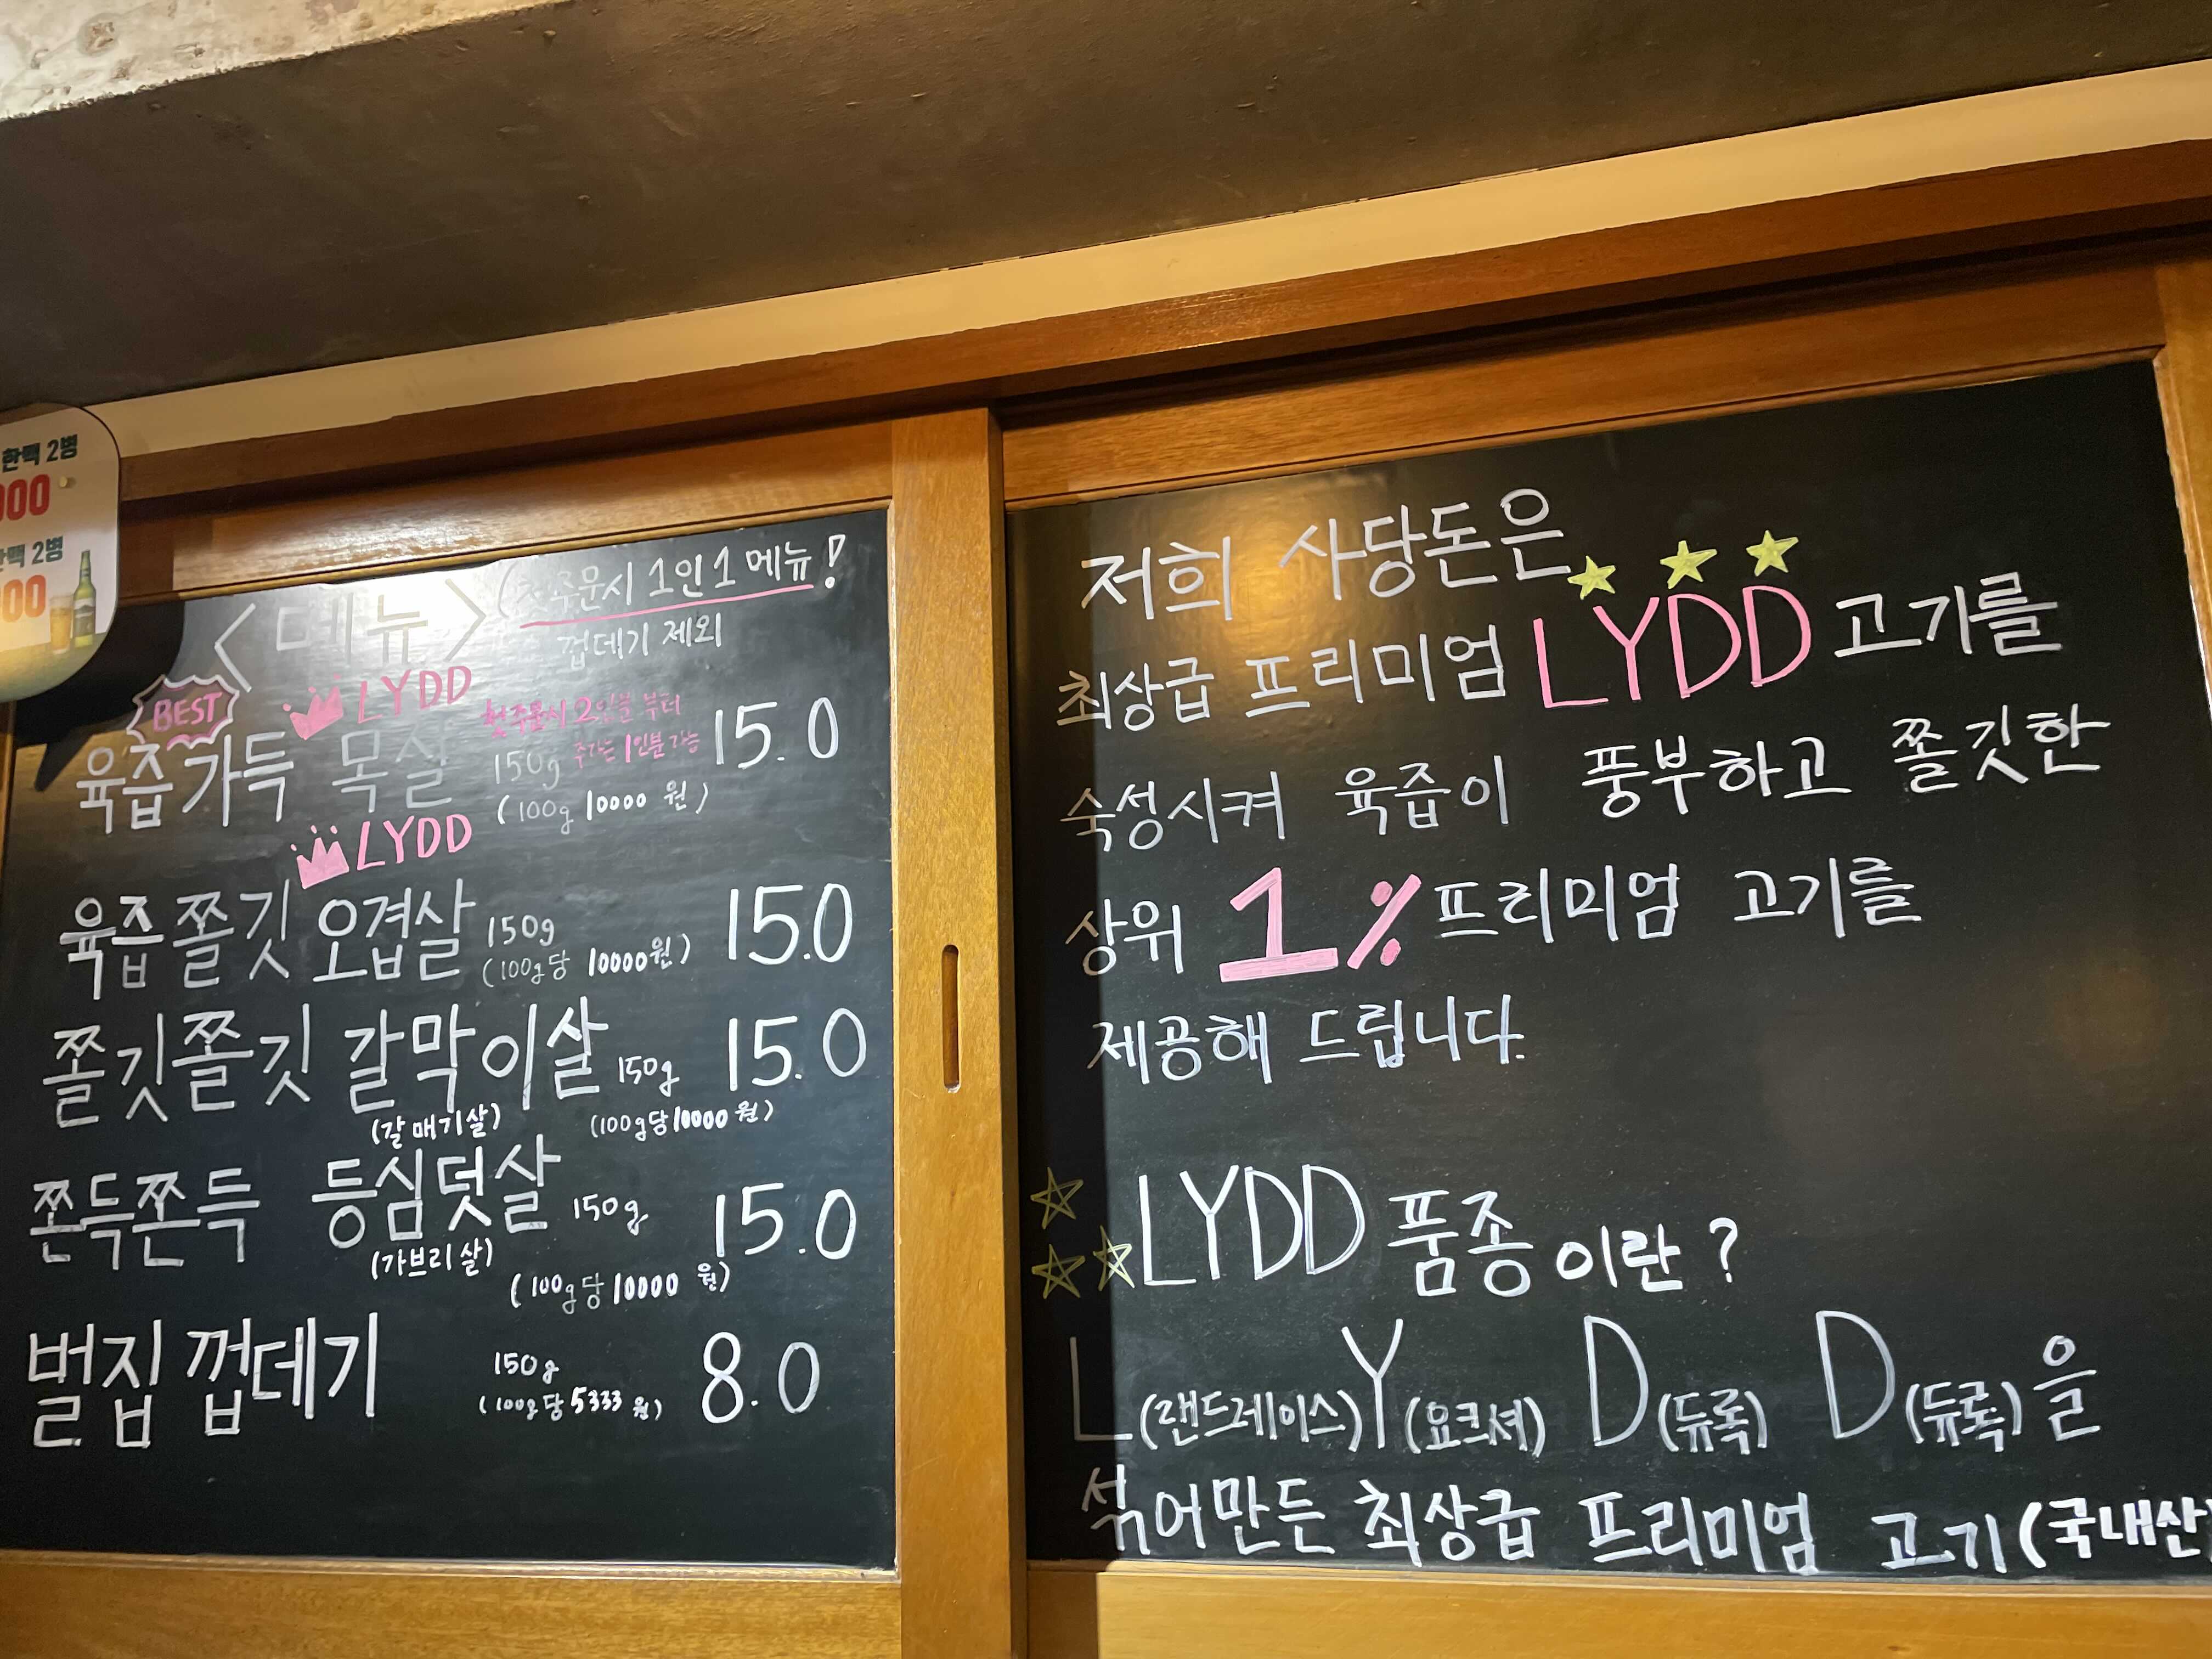 한맥 2병
000
한맥 2병
000
<메뉴> (첫주문시 1인1메뉴!
껍데기 제외
BEST
LYDD
육즙가득 목살 150g 15.0
첫주문시 2인분 부터
추가는 1인분가능
(100g 10000 원)
LYDD
육즙쫄깃 오겹살 150g 15.0
(100g당 10000원)
쫄깃쫄깃 갈막이살 150g 15.0
(갈매기살) (100g당 10000 원)
쫀득쫀득 등심덧살 150g 15.0
(가브리살) (100g당 10000 원)
벌집 껍데기 150g 8.0
(100g당 5333 원)
저희 사당돈은
최상급 프리미엄 LYDD 고기를
숙성시켜 육즙이 풍부하고 쫄깃한
상위 1% 프리미엄 고기를
제공해 드립니다.
LYDD 품종이란?
L(랜드레이스)Y(요크셔) D(듀록) D(듀록)을
섞어만든 최상급 프리미엄 고기(국내산)